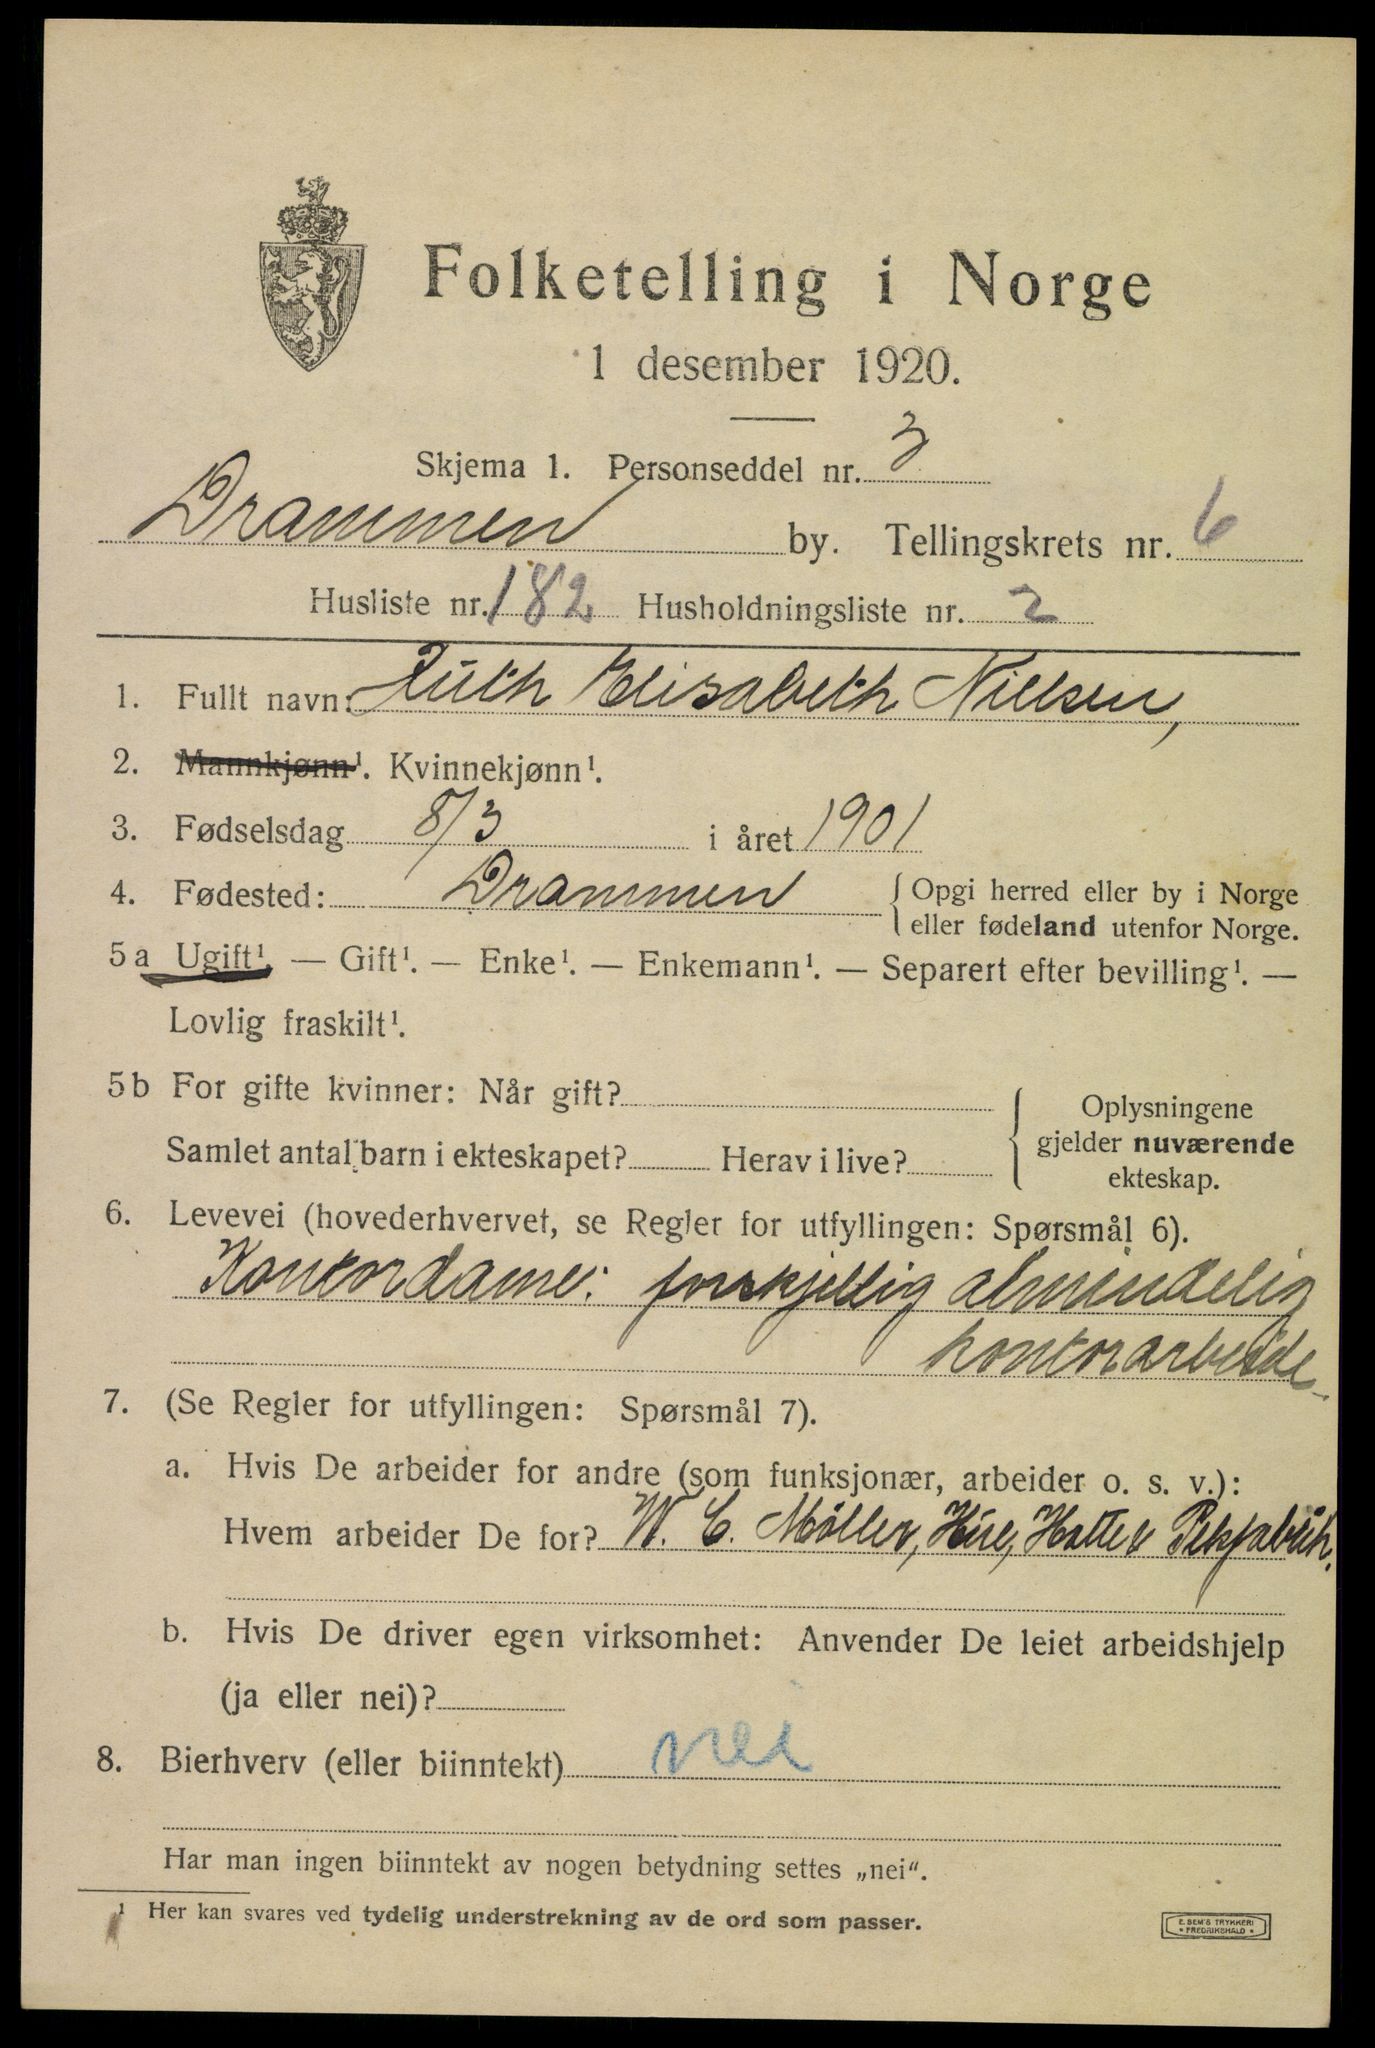 Folketelling i Norge
1 desember 1920.
Skjema 1. Personseddel nr. 3
Drammen by. Tellingskrets nr. 6
Husliste nr. 182 Husholdningsliste nr. 2
1. Fullt navn: Ruth Elisabeth Nielsen,
2. Mannkjønn¹. Kvinnekjønn¹.
3. Fødselsdag 8/3 i året 1901
4. Fødested: Drammen { Opgi herred eller by i Norge
eller fødeland utenfor Norge.
5a Ugift¹. — Gift¹. — Enke¹. — Enkemann¹. — Separert efter bevilling¹. —
Lovlig fraskilt¹.
5b For gifte kvinner: Når gift?
Samlet antal barn i ekteskapet? Herav i live?
Oplysningene
gjelder nuværende
ekteskap.
6. Levevei (hovederhvervet, se Regler for utfyllingen: Spørsmål 6).
Kontordame: forskjellig almindelig
kontorarbeide
7. (Se Regler for utfyllingen: Spørsmål 7).
a. Hvis De arbeider for andre (som funksjonær, arbeider o. s. v.):
Hvem arbeider De for? W. C. Møller, Hue, Hatte & Pelsfabrik.
b. Hvis De driver egen virksomhet: Anvender De leiet arbeidshjelp
(ja eller nei)?
8. Bierhverv (eller biinntekt) nei
Har man ingen biinntekt av nogen betydning settes „nei“.
¹ Her kan svares ved tydelig understrekning av de ord som passer.
E. SEM'S TRYKKERI
• FREDRIKSHALD •